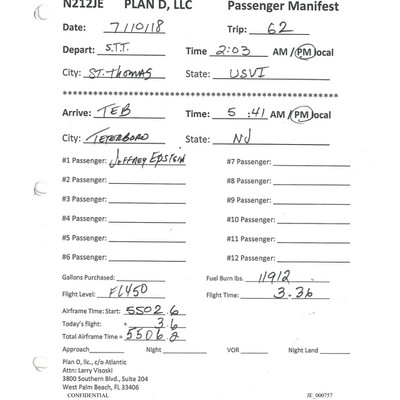 N212JE PLAN D, LLC Passenger Manifest
Date: 7/10/18 Trip: 62
Depart: S.T.T. Time 2:03 AM / PM local
City: ST. THOMAS State: USVI
Arrive: TEB Time: 5:41 AM / PM local
City: TETERBORO State: NJ
#1 Passenger: JEFFREY EPSTEIN #7 Passenger:
#2 Passenger: #8 Passenger:
#3 Passenger: #9 Passenger:
#4 Passenger: #10 Passenger:
#5 Passenger: #11 Passenger:
#6 Passenger: #12 Passenger:
Gallons Purchased: Fuel Burn lbs. 11912
Flight Level: FL450 Flight Time: 3.36
Airframe Time: Start: 5502.6
Today's flight: + 3.6
Total Airframe Time = 5506.2
Approach Night VOR Night Land
Plan D, llc., c/o Atlantic
Attn: Larry Visoski
3800 Southern Blvd., Suite 204
West Palm Beach, FL 33406
CONFIDENTIAL JE_000757